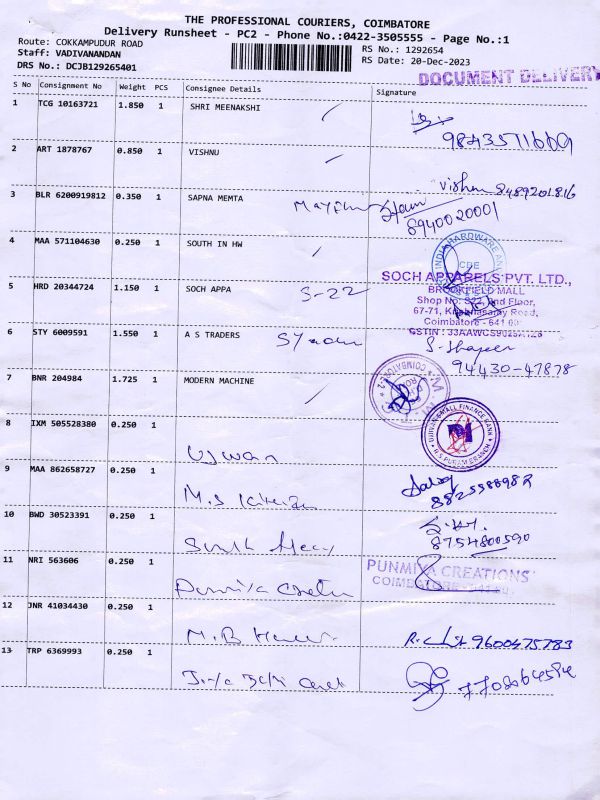 THE PROFESSIONAL COURIERS, COIMBATORE
Delivery Runsheet - PC2 - Phone No.:0422-3505555 - Page No.:1
Route: COKKAMPUDUR ROAD
Staff: VADIVANANDAN
DRS No.: DCJB129265401
RS No.: 1292654
RS Date: 20-Dec-2023
DOCUMENT DELIVERY
S No Consignment No Weight PCS Consignee Details Signature
1 TCG 10163721 1.850 1 SHRI MEENAKSHI
2 ART 1878767 0.850 1 VISHNU
Vishnu 8489201816
3 BLR 6200919812 0.350 1 SAPNA MEMTA
8940020001
4 MAA 571104630 0.250 1 SOUTH IN HW
INDIA HARDWARE AN
5 HRD 20344724 1.150 1 SOCH APPA S-22
SOCH APPARELS PVT. LTD.,
BROOKFIELD MALL
Shop No: S22, 2nd Floor,
67-71, Krishnasamy Road,
Coimbatore - 641 00
6 STY 6009591 1.550 1 A S TRADERS
94430-47878
7 BNR 204984 1.725 1 MODERN MACHINE
COIMBATORE-2
8 IXM 505528380 0.250 1 Ujwan
UJJIVAN SMALL FINANCE BANK
R.S PURAM BRANCH
9 MAA 862658727 0.250 1 M.S
10 BWD 30523391 0.250 1
8754800590
11 NRI 563606 0.250 1 Punmiya
PUNMIYA CREATIONS
12 JNR 41034430 0.250 1 M.B
9600475783
13 TRP 6369993 0.250 1